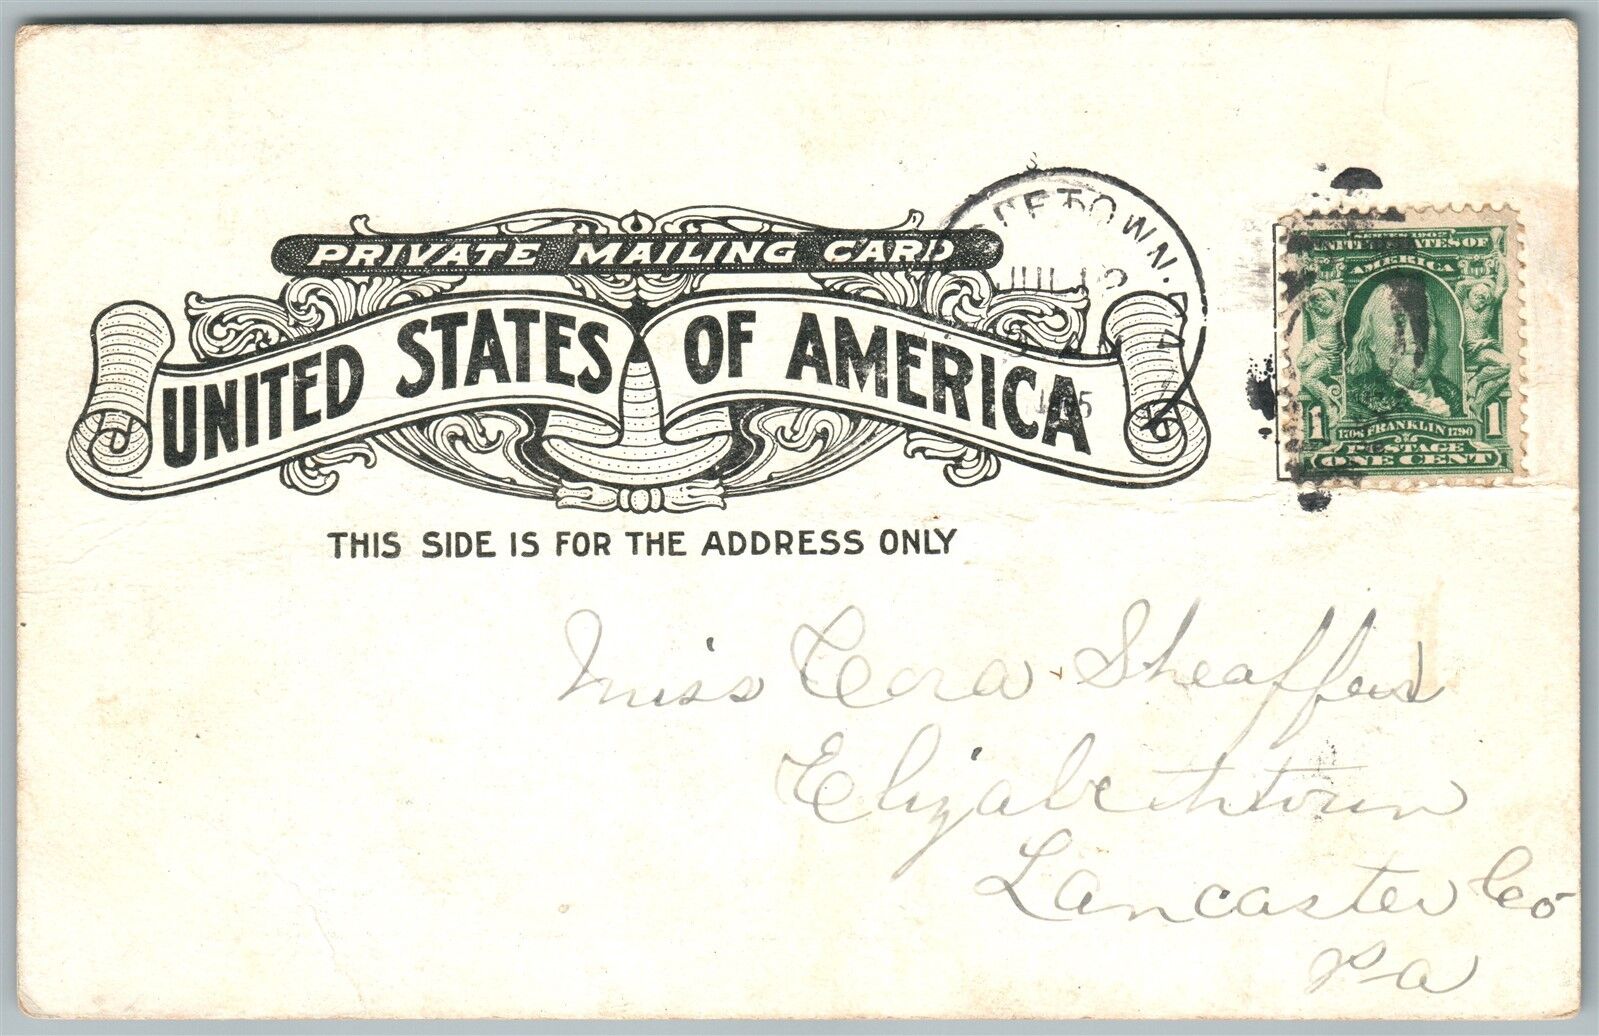 PRIVATE MAILING CARD
UNITED STATES OF AMERICA
THIS SIDE IS FOR THE ADDRESS ONLY
TOWN. PA
JUL
SERIES 1902
UNITED STATES OF
AMERICA
1 1
1706 FRANKLIN 1790
POSTAGE
ONE CENT
Miss Cora Sheaffer
Elizabethtown
Lancaster Co
Pa